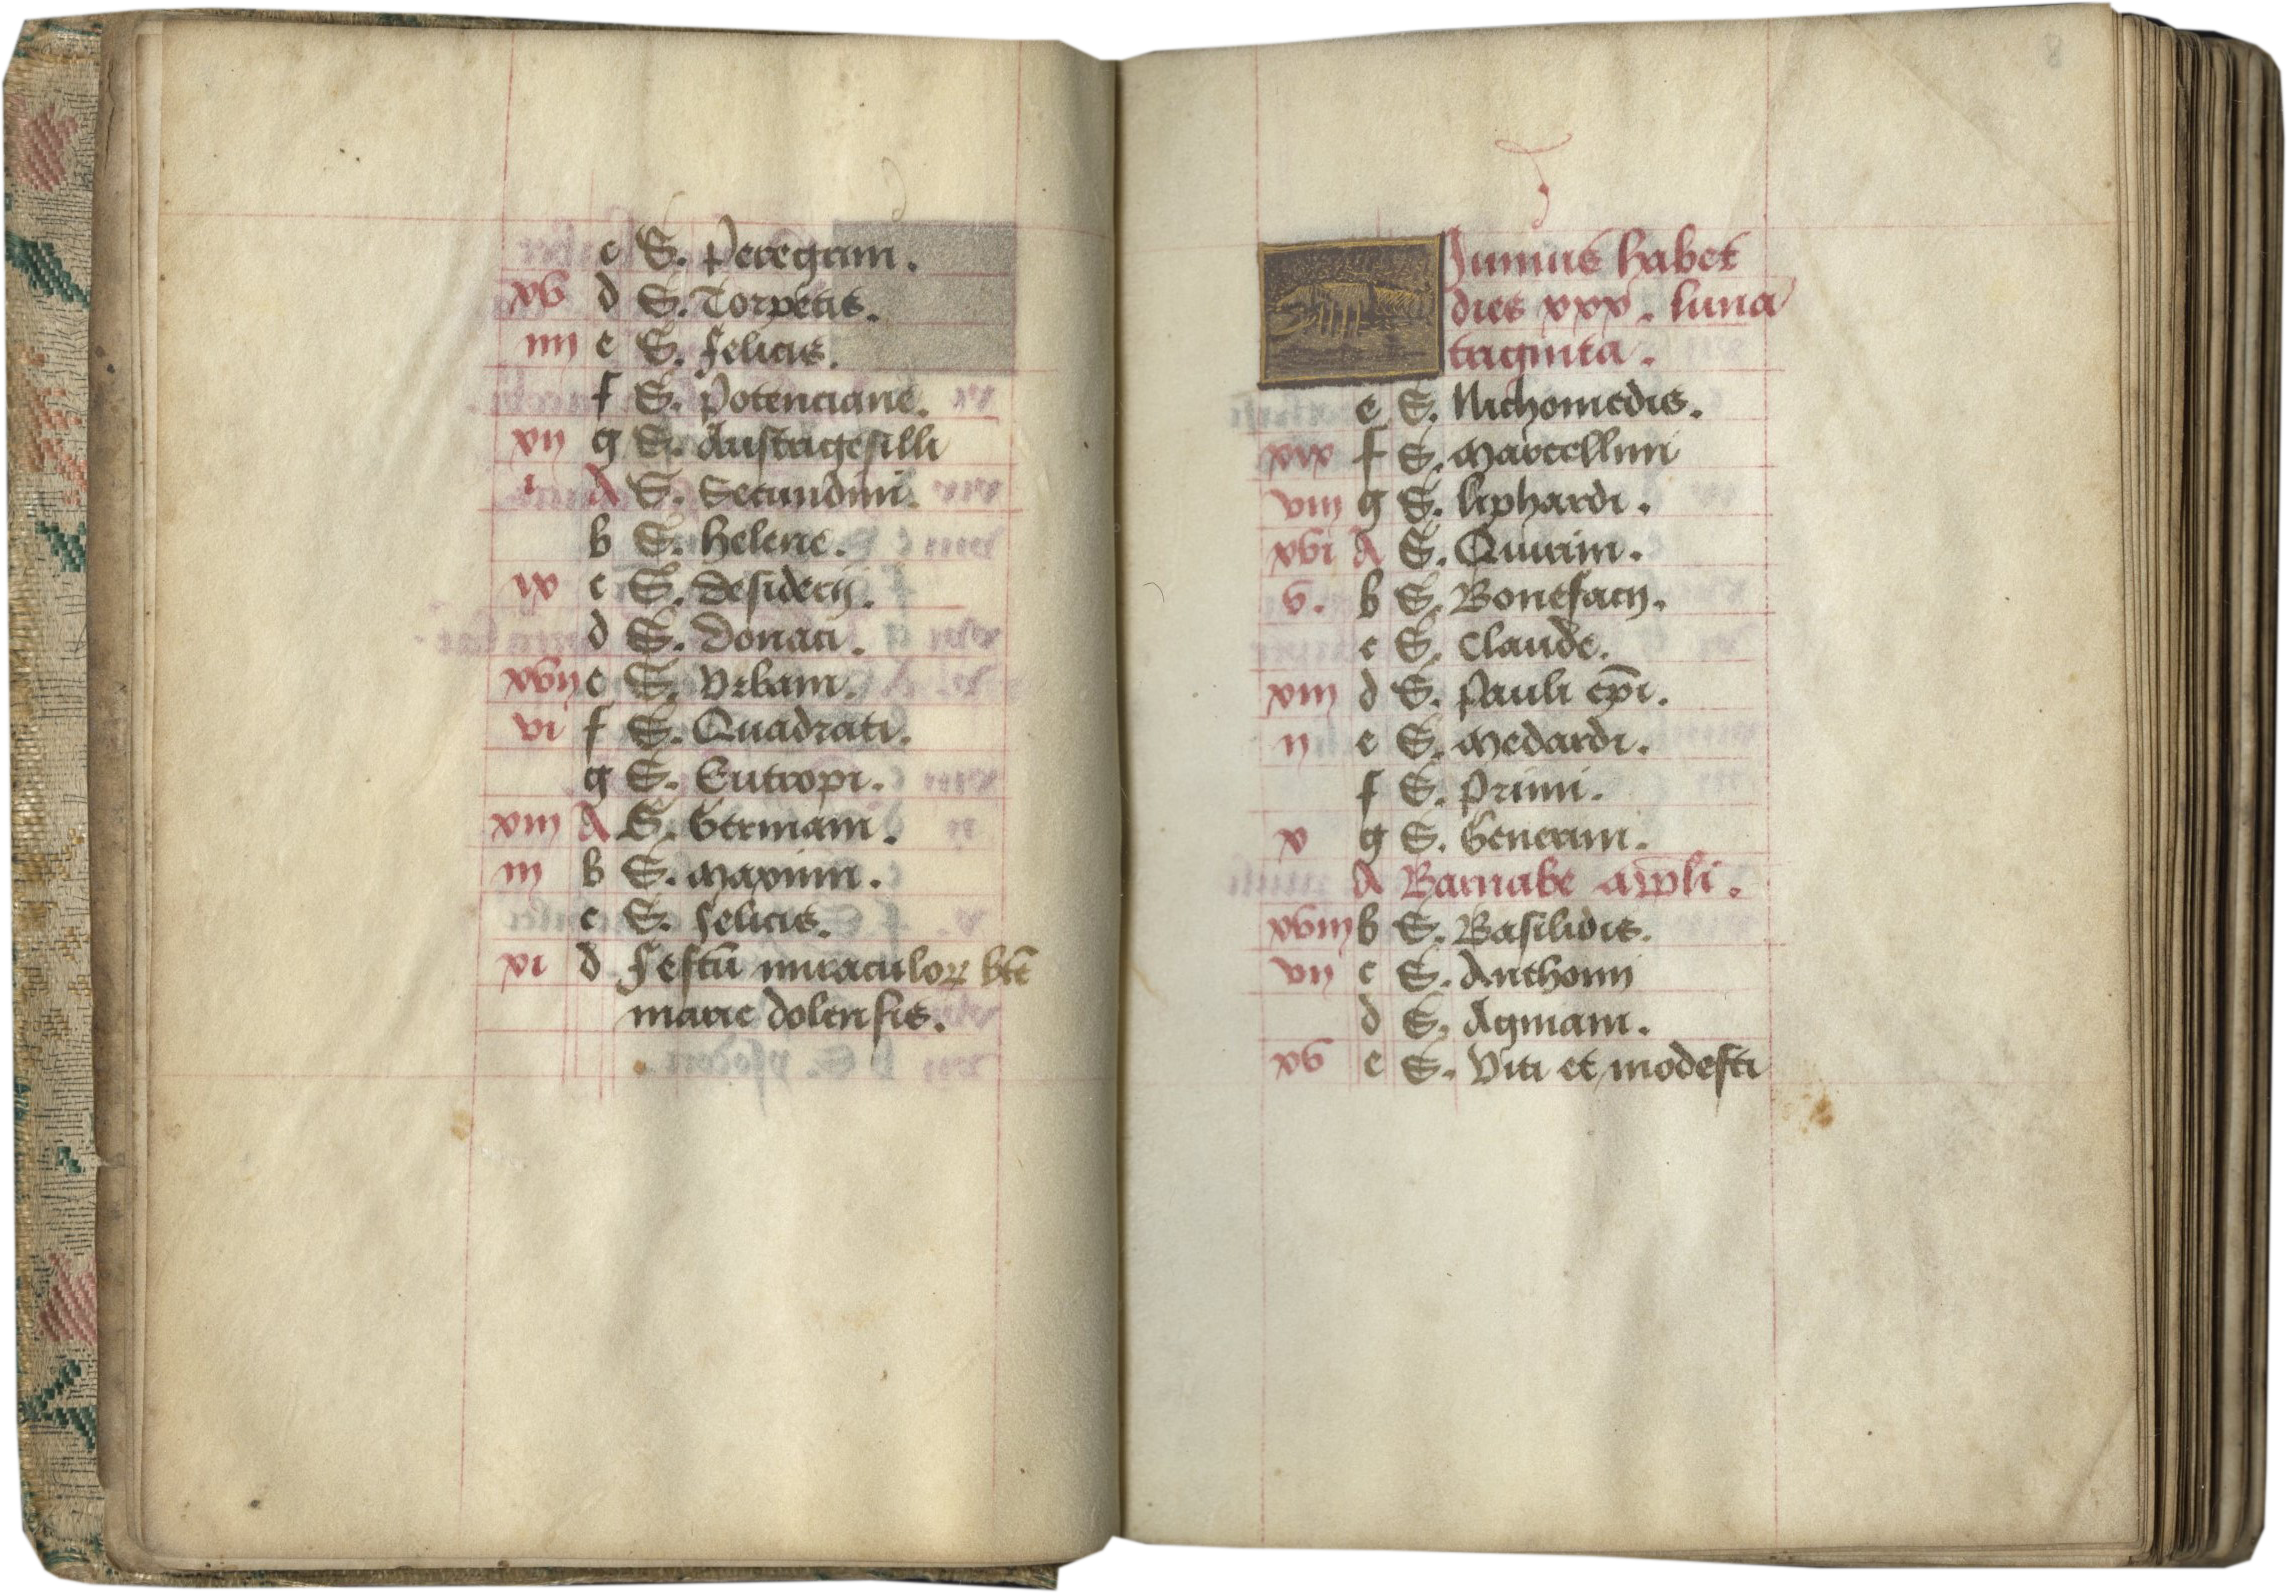 c S. Peregrini.
xv d S. Torpetis.
iiii e S. Felicis.
f S. Potenciane.
xii g S. Austrigesilli
i A S. Secundini.
b S. Helene.
ix c S. Desiderij.
d S. Donaci.
xvii e S. Urbani.
vi f S. Quadrati.
g S. Eutropi.
xiiii A S. Germani.
iii b S. Maximi.
c S. Felicis.
xi d Festū miraculoꝝ btē
marie dolensis.
8
Junius habet
dies xxx. luna
triginta.
e S. Nichomedis.
xix f S. Marcellini
viii g S. Liphardi.
xvi A S. Quirini.
v. b S. Bonefacij.
c S. Claude.
xiii d S. Pauli ep̄i.
ii e S. Medardi.
f S. Primi.
x g S. Generini.
A Barnabe apl̄i.
xviii b S. Basilidis.
vii c S. Anthonii
d S. Agniani.
xv e S. Viti et modesti